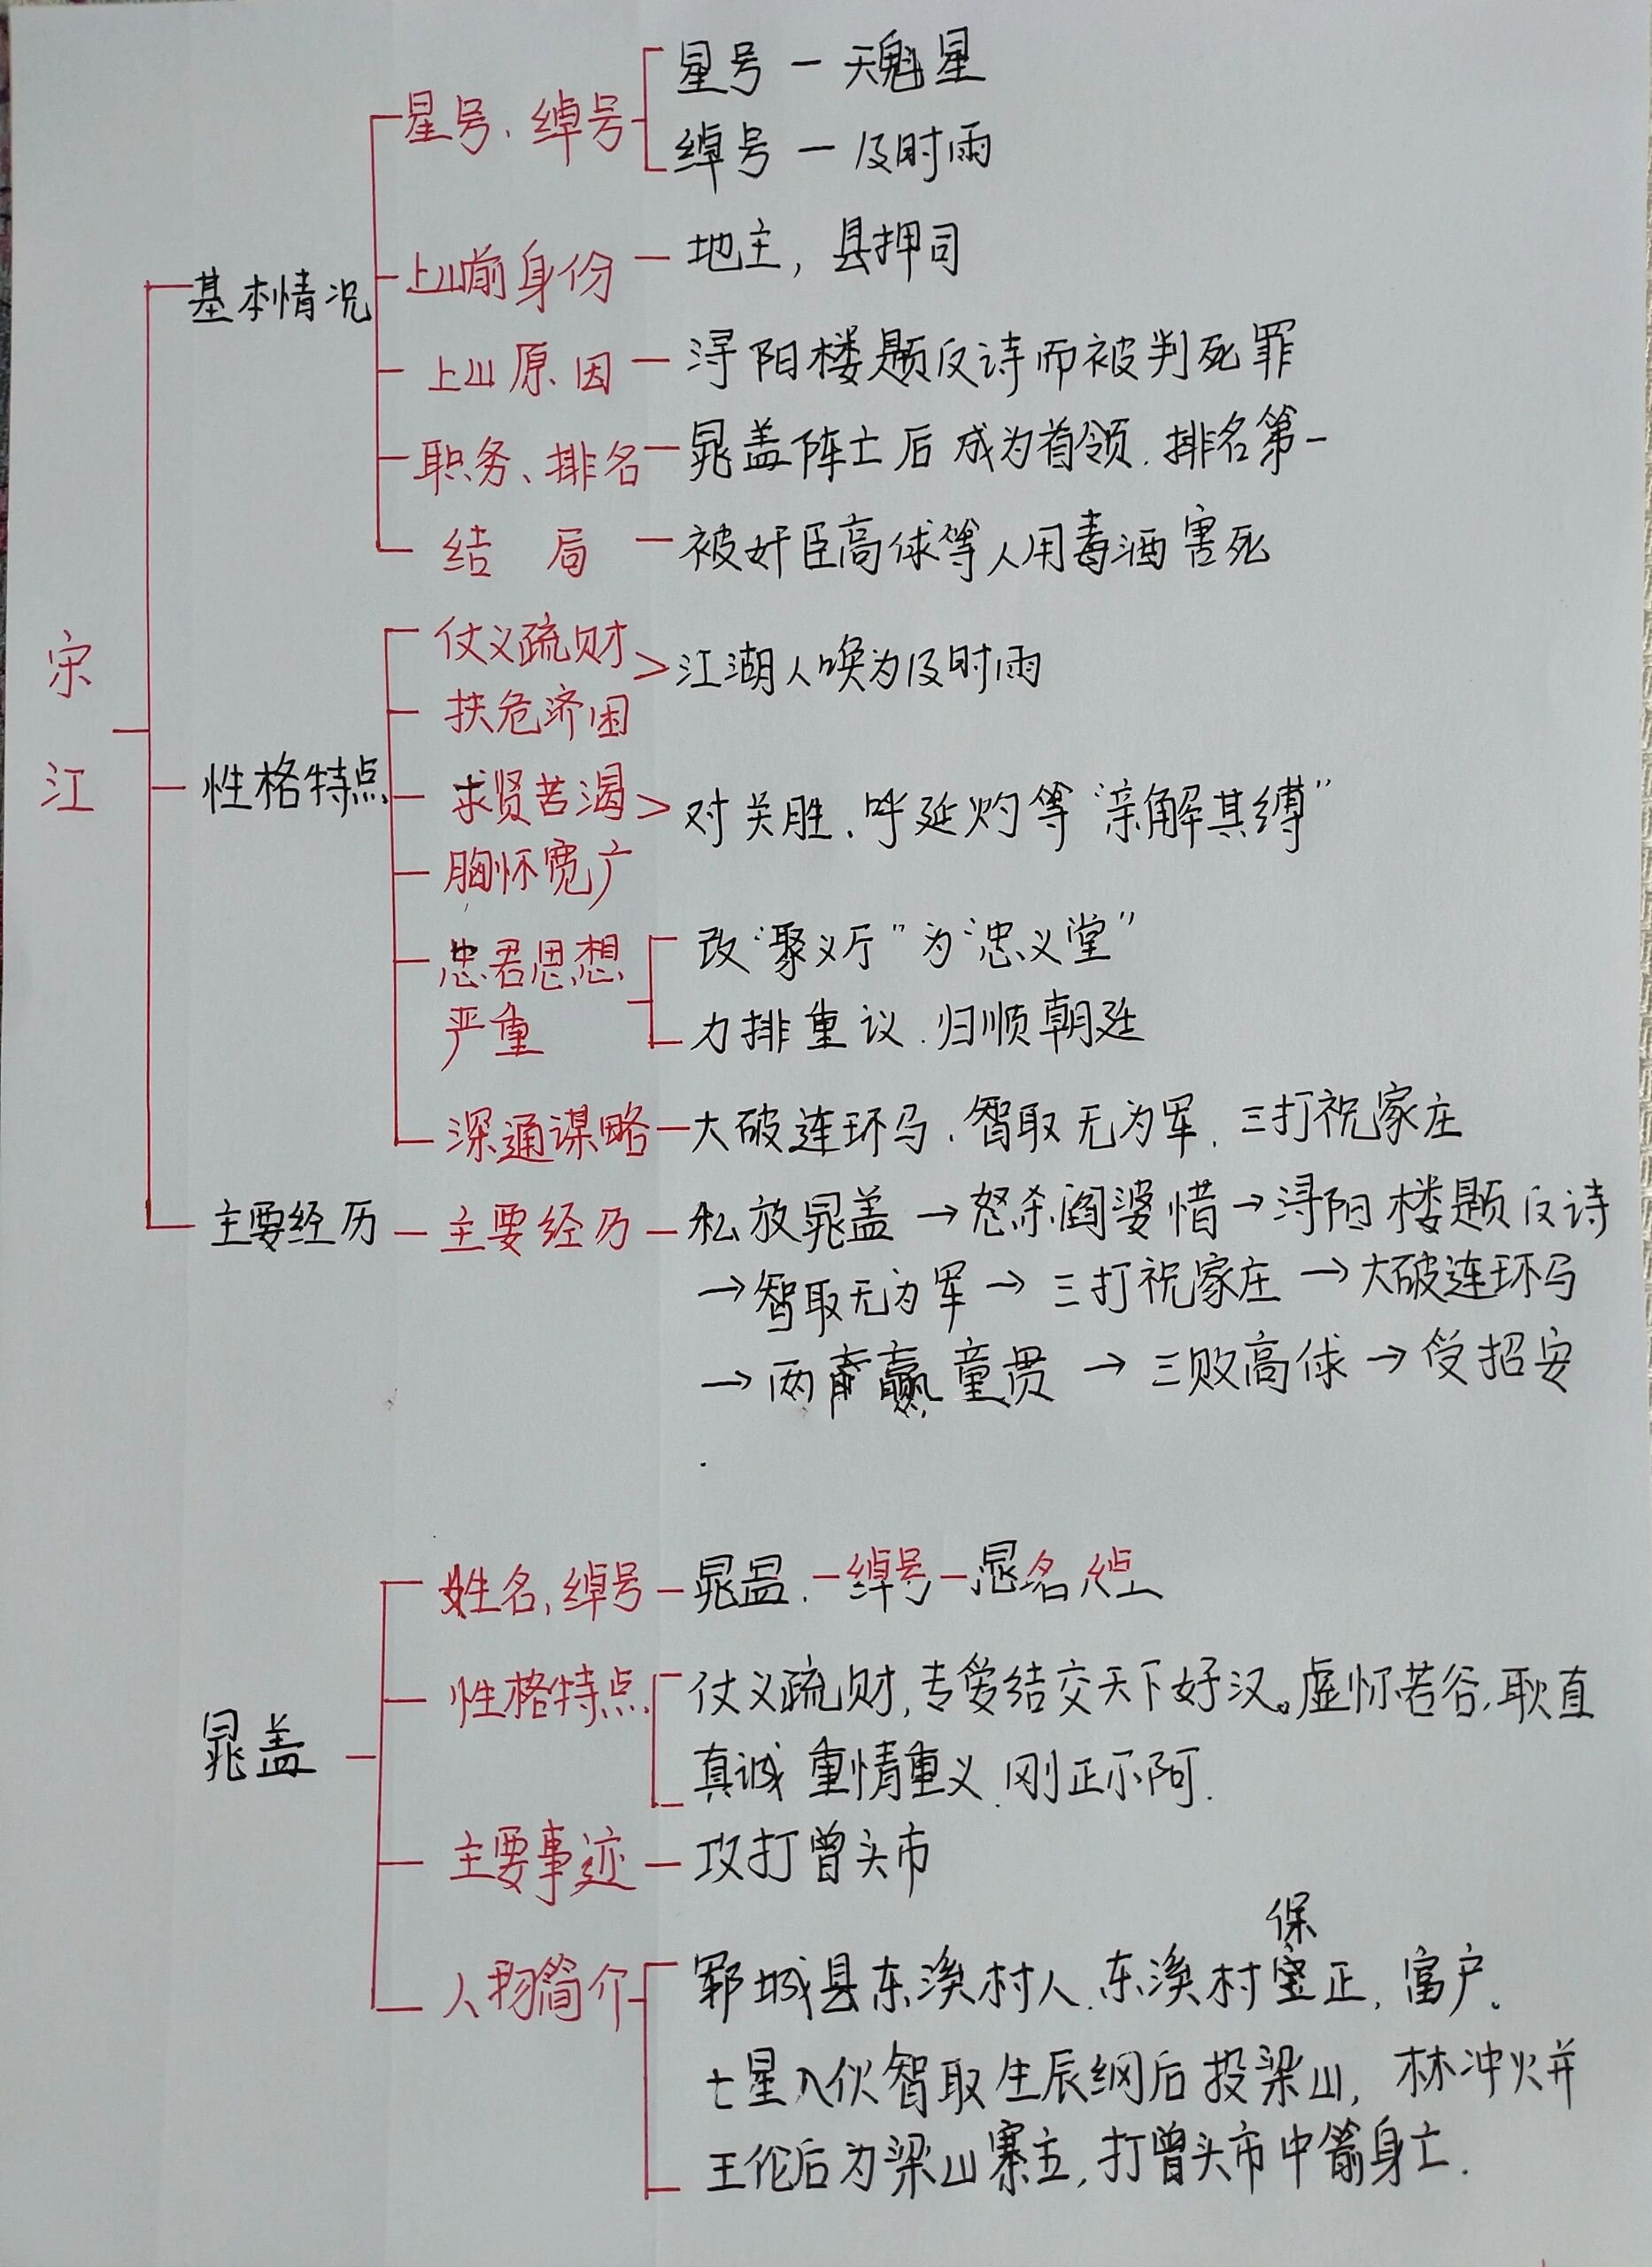 宋江
基本情况
星号、绰号
星号 — 天魁星
绰号 — 及时雨
上山前身份 — 地主，县押司
上山原因 — 浔阳楼题反诗而被判死罪
职务、排名 — 晁盖阵士后成为首领．排名第一
结局 — 被奸臣高俅等人用毒酒害死
性格特点
仗义疏财
扶危济困
> 江湖人唤为及时雨
求贤苦渴
胸怀宽广
> 对关胜、呼延灼等“亲解其缚”
忠君思想
严重
改“聚义厅”为“忠义堂”
力排重议．归顺朝廷
深通谋略 — 大破连环马．智取无为军．三打祝家庄
主要经历 — 主要经历 — 私放晁盖 → 怒杀阎婆惜 → 浔阳楼题反诗
→ 智取无为军 → 三打祝家庄 → 大破连环马
→ 两赢童贯 → 三败高俅 → 受招安
晁盖
姓名，绰号 — 晁盖． — 绰号 —
性格特点
仗义疏财，专爱结交天下好汉。虚怀若谷，耿直
真诚 重情重义．刚正不阿．
主要事迹 — 攻打曾头市
人物简介
郓城县东溪村人．东溪村保正，富户。
七星入伙智取生辰纲后投梁山，林冲火并
王伦后为梁山寨主，打曾头市中箭身亡．